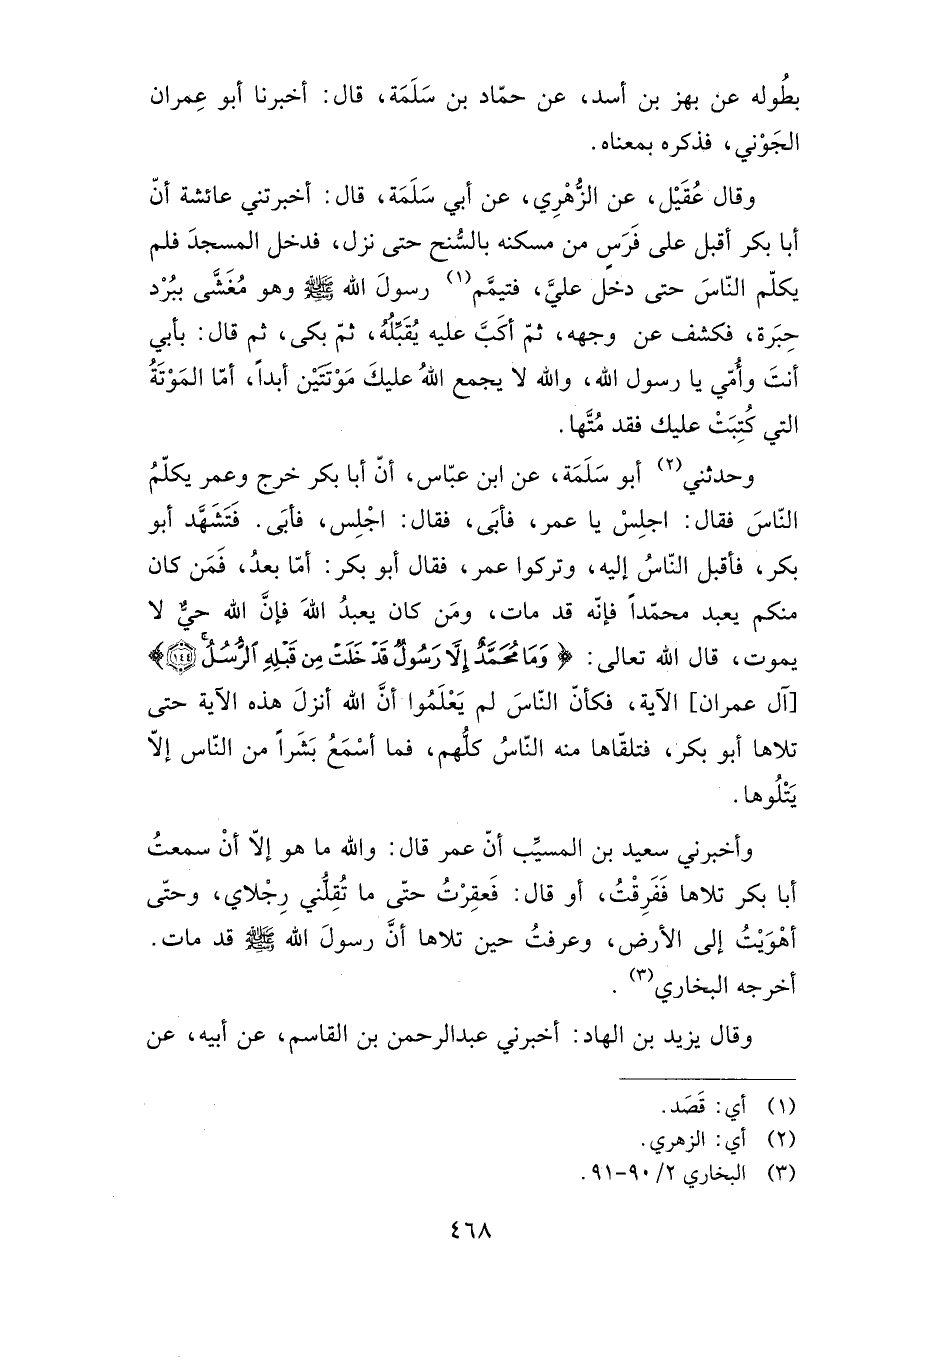 بطُوله عن بهز بن أسد، عن حمّاد بن سَلَمَة، قال: أخبرنا أبو عِمران
الجَوْني، فذكره بمعناه.
وقال عُقَيْل، عن الزُّهْرِي، عن أبي سَلَمَة، قال: أخبرتني عائشة أنّ
أبا بكر أقبل على فَرَسٍ من مسكنه بالسُّنح حتى نزل، فدخل المسجدَ فلم
يكلّم النّاسَ حتى دخل عليَّ، فتيمَّم(١) رسولَ الله ﷺ وهو مُغَشَّى ببُرْد
حِبَرة، فكشف عن وجهه، ثمّ أكَبَّ عليه يُقَبِّلُهُ، ثمّ بكى، ثم قال: بأبي
أنتَ وأُمّي يا رسول الله، والله لا يجمع اللهُ عليكَ مَوْتَتَيْن أبداً، أمّا المَوْتَةُ
التي كُتِبَتْ عليك فقد مُتَّها.
وحدثني(٢) أبو سَلَمَة، عن ابن عبّاس، أنّ أبا بكر خرج وعمر يكلّمُ
النّاسَ فقال: اجلِسْ يا عمر، فأبَى، فقال: اجْلِس، فأبَى. فَتَشَهَّد أبو
بكر، فأقبل النّاسُ إليه، وتركوا عمر، فقال أبو بكر: أمّا بعدُ، فَمَن كان
منكم يعبد محمّداً فإنّه قد مات، ومَن كان يعبدُ اللهَ فإنَّ الله حيٌّ لا
يموت، قال الله تعالى: ﴿وَمَا مُحَمَّدٌ إِلَّا رَسُولٌ قَدْ خَلَتْ مِن قَبْلِهِ ٱلرُّسُلُۚ ١٤٤﴾
[آل عمران] الآية، فكأنّ النّاسَ لم يَعْلَمُوا أنَّ الله أنزلَ هذه الآية حتى
تلاها أبو بكر، فتلقّاها منه النّاسُ كلُّهم، فما أسْمَعُ بَشَراً من النّاس إلاّ
يَتْلُوها.
وأخبرني سعيد بن المسيِّب أنّ عمر قال: والله ما هو إلاّ أنْ سمعتُ
أبا بكر تلاها فَفَرِقْتُ، أو قال: فَعقِرْتُ حتّى ما تُقِلُّني رِجْلاي، وحتّى
أهْوَيْتُ إلى الأرض، وعرفتُ حين تلاها أنَّ رسولَ الله ﷺ قد مات.
أخرجه البخاري(٣).
وقال يزيد بن الهاد: أخبرني عبدالرحمن بن القاسم، عن أبيه، عن
(١) أي: قَصَد.
(٢) أي: الزهري.
(٣) البخاري ٢/ ٩٠-٩١.
٤٦٨